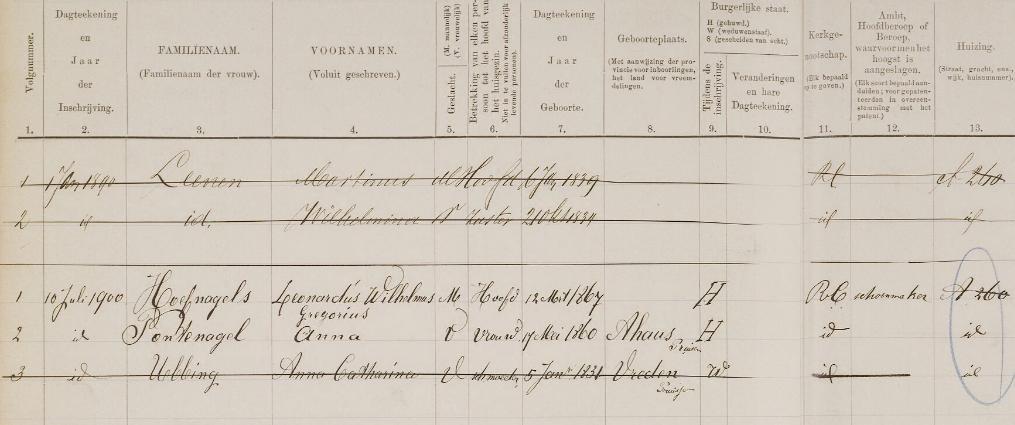 Volgnummer.
Dagteekening
en
Jaar
der
Inschrijving.
FAMILIENAAM.
(Familienaam der vrouw).
VOORNAMEN.
(Voluit geschreven.)
(M. mannelijk)
(V. vrouwelijk)
Geslacht.
Betrekking van elken per-
soon tot het hoofd van
het huisgezin.
Niet in te vullen voor afzonderlijk
levende personen.
Dagteekening
en
Jaar
der
Geboorte.
Geboorteplaats.
(Met aanwijzing der pro-
vincie voor inboorlingen,
het land voor vreem-
delingen.
Burgerlijke staat.
H (gehuwd.)
W (weduwenstaat).
S (gescheiden van echt.)
Tijdens de
inschrijving.
Veranderingen
en hare
Dagteekening.
Kerkge-
nootschap.
(Elk bepaald
op te geven.)
Ambt,
Hoofdberoep of
Beroep,
waarvoor men het
hoogst is
aangeslagen.
(Elk soort bepaald aan-
duiden; voor gepaten-
teerden in overeen-
stemming met het
patent.)
Huizing.
(Straat, gracht, enz.,
wijk, huisnummer).
1. 2. 3. 4. 5. 6. 7. 8. 9. 10. 11. 12. 13.
1 1 Jan 1890 Leenen Martinus M Hoofd 1839 RC A 260
2 id id. Wilhelmina V Zuster 21 Oct 1834 id id
1 10 Juli 1900 Hoefnagels Leonardus Wilhelmus M Hoofd 12 Mrt 1867 H R.C schoenmaker A 260
Gregorius
2 id Pontenagel Anna V Vrouw 17 Mei 1860 Ahaus H id id
Pruisen
3 id Ubbing Anna Catharina V 5 Janr 1831 Vreden W id id
Pruisen